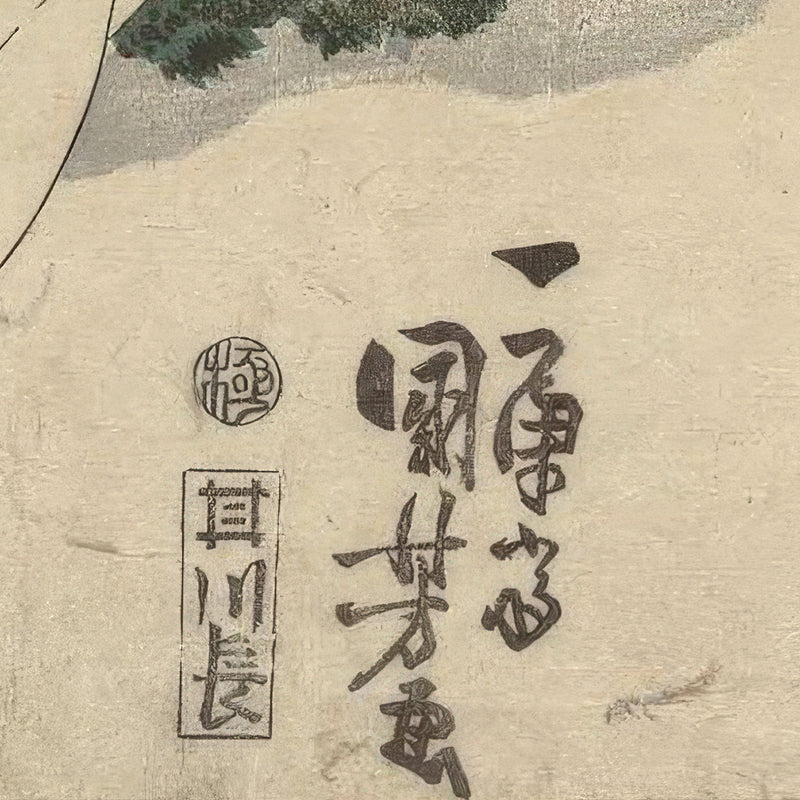 一勇斎
國芳画
極
甘川長